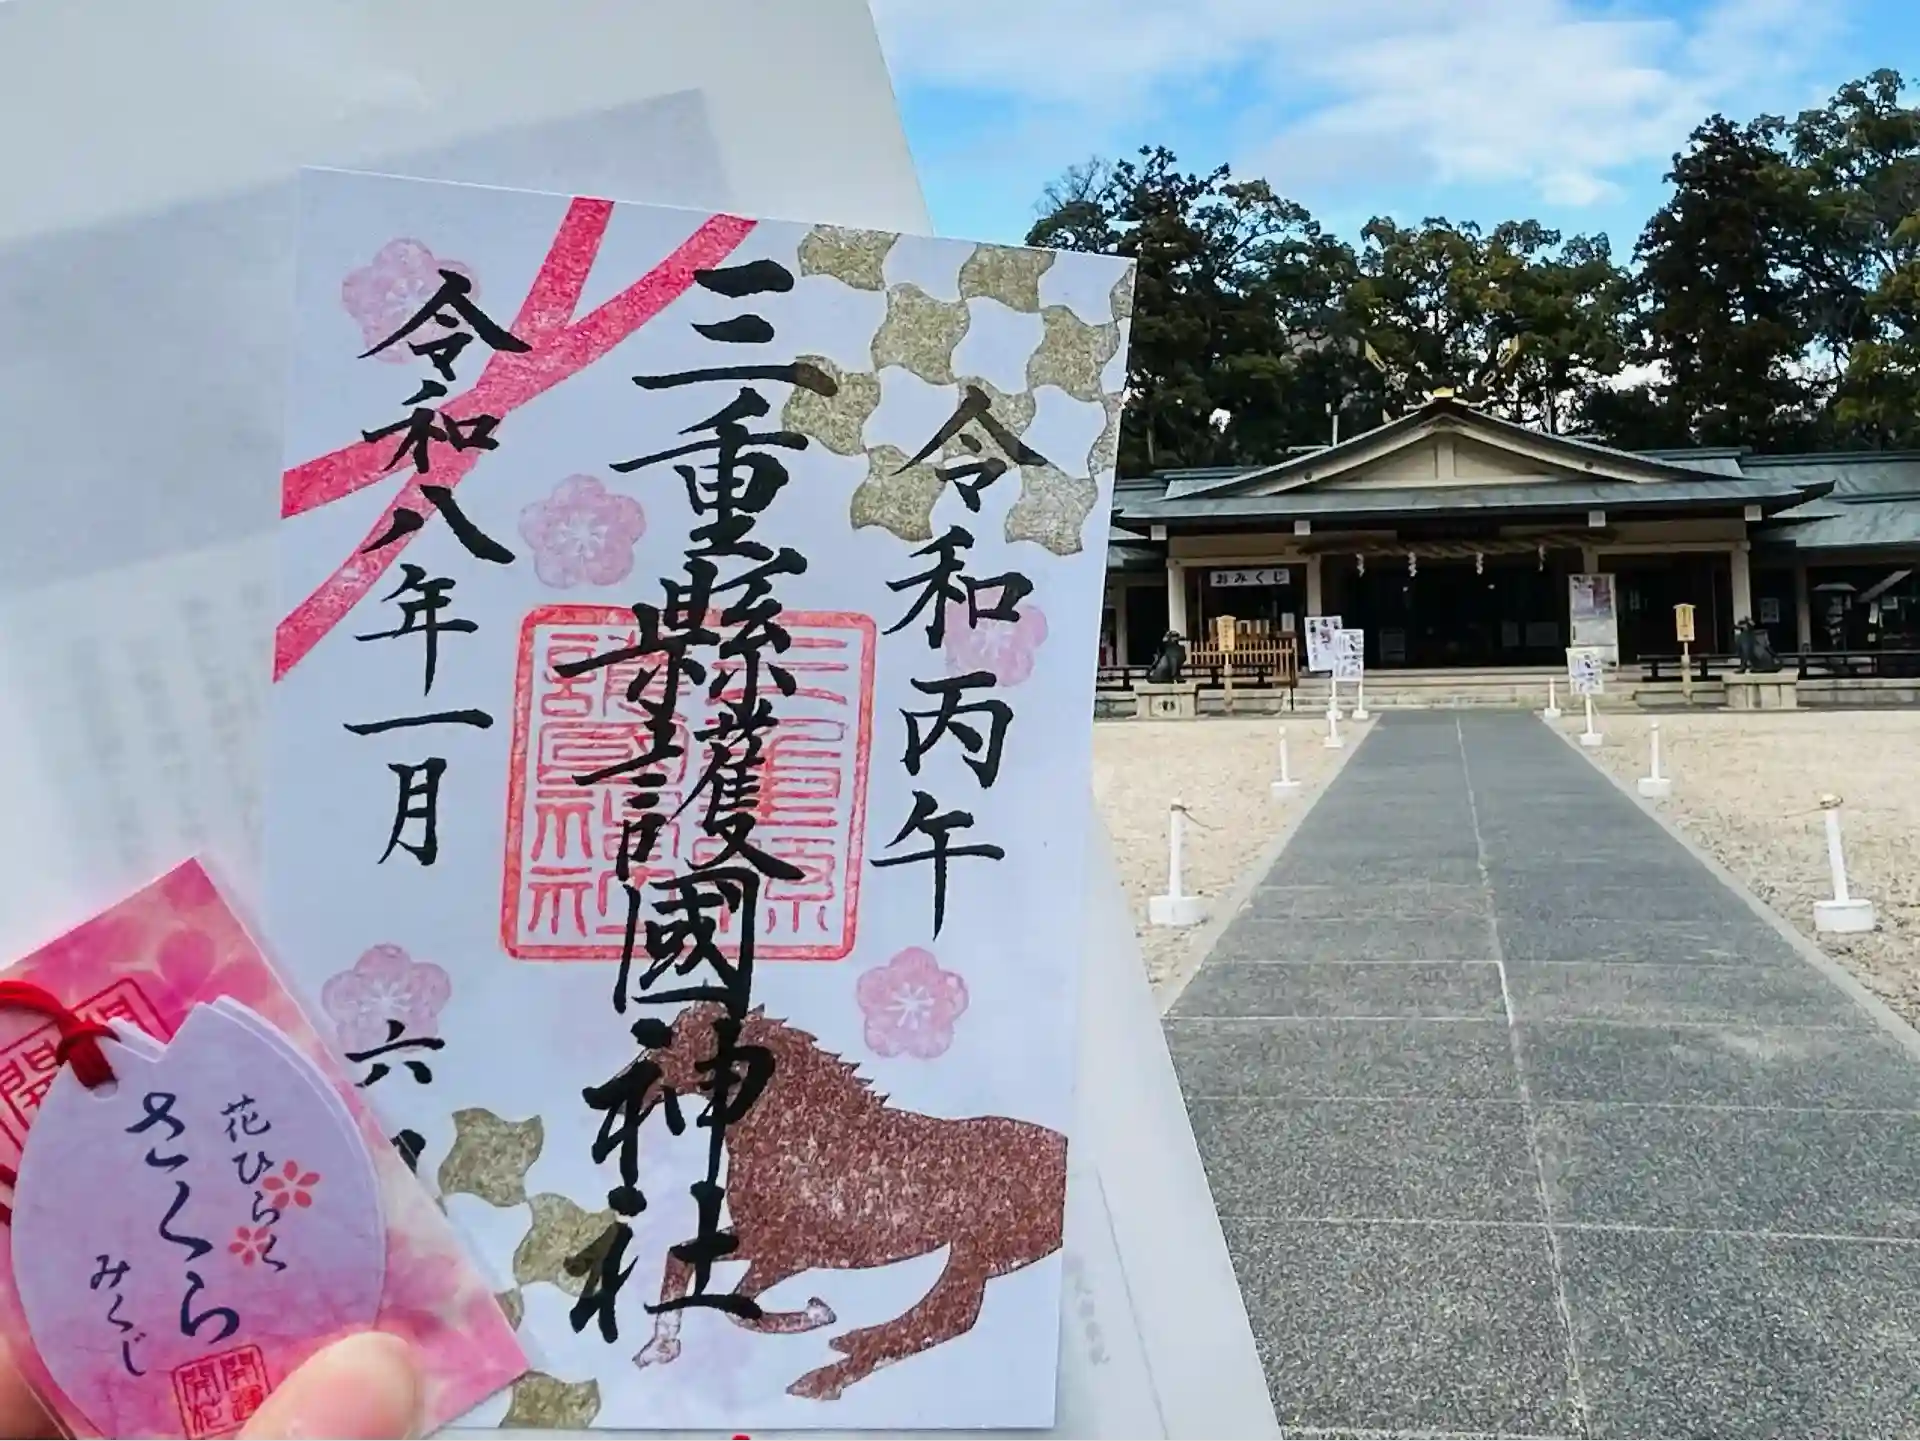 令和丙午
三重縣護國神社
令和八年一月
六
三重県
護國神社
花ひらく
さくら
みくじ
開運
開花
開
おみくじ